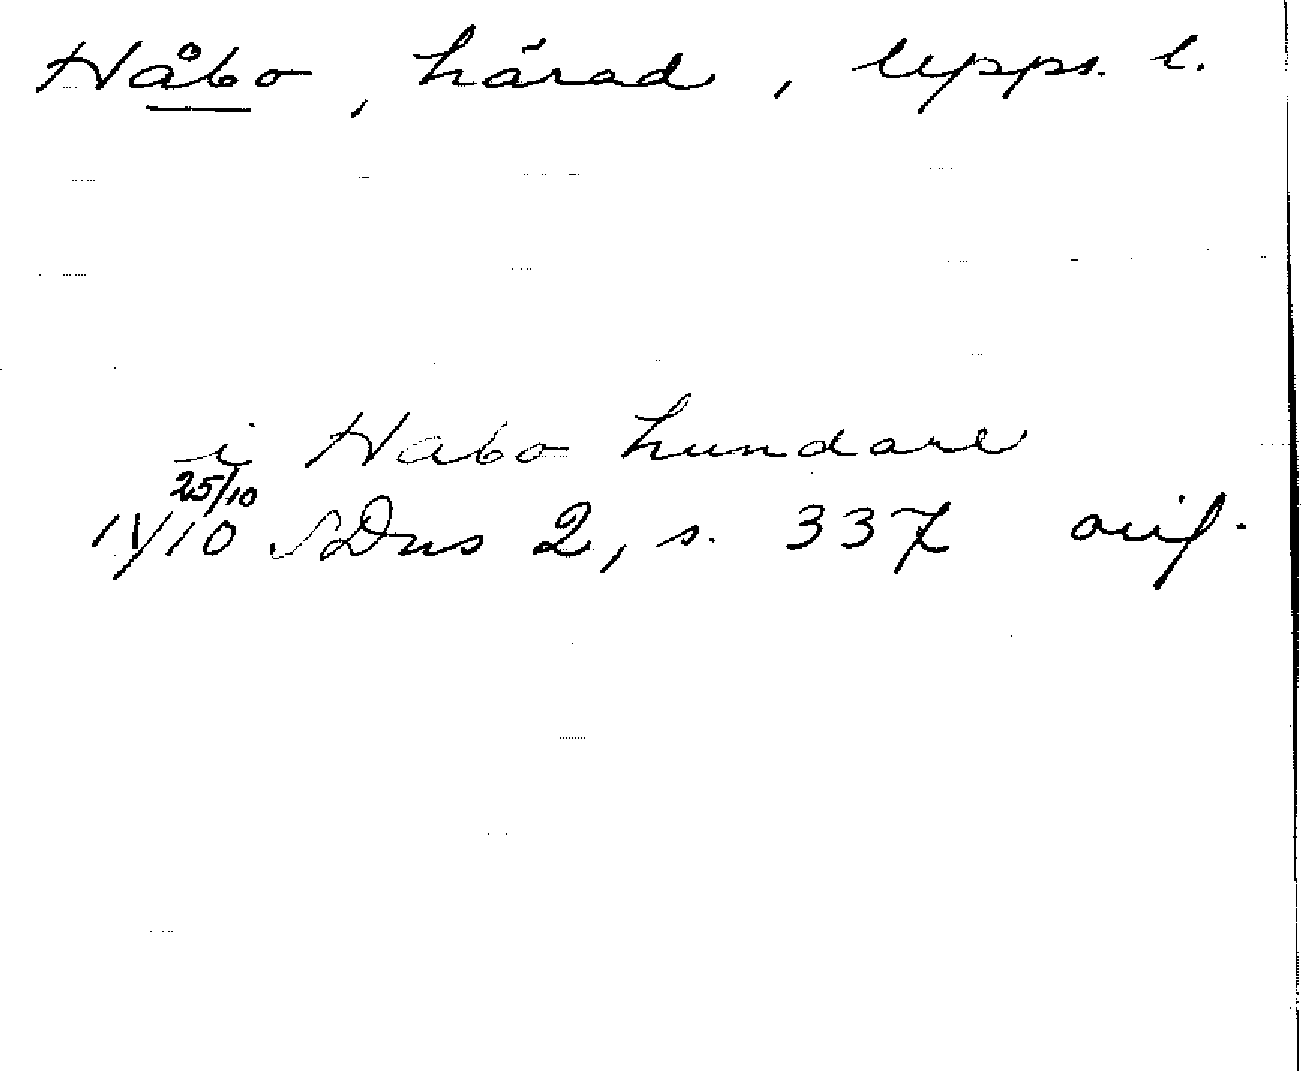 Håbo, härad, Upps. l.
i Habo hundare
25/10
SDns 2, s. 337 orig.